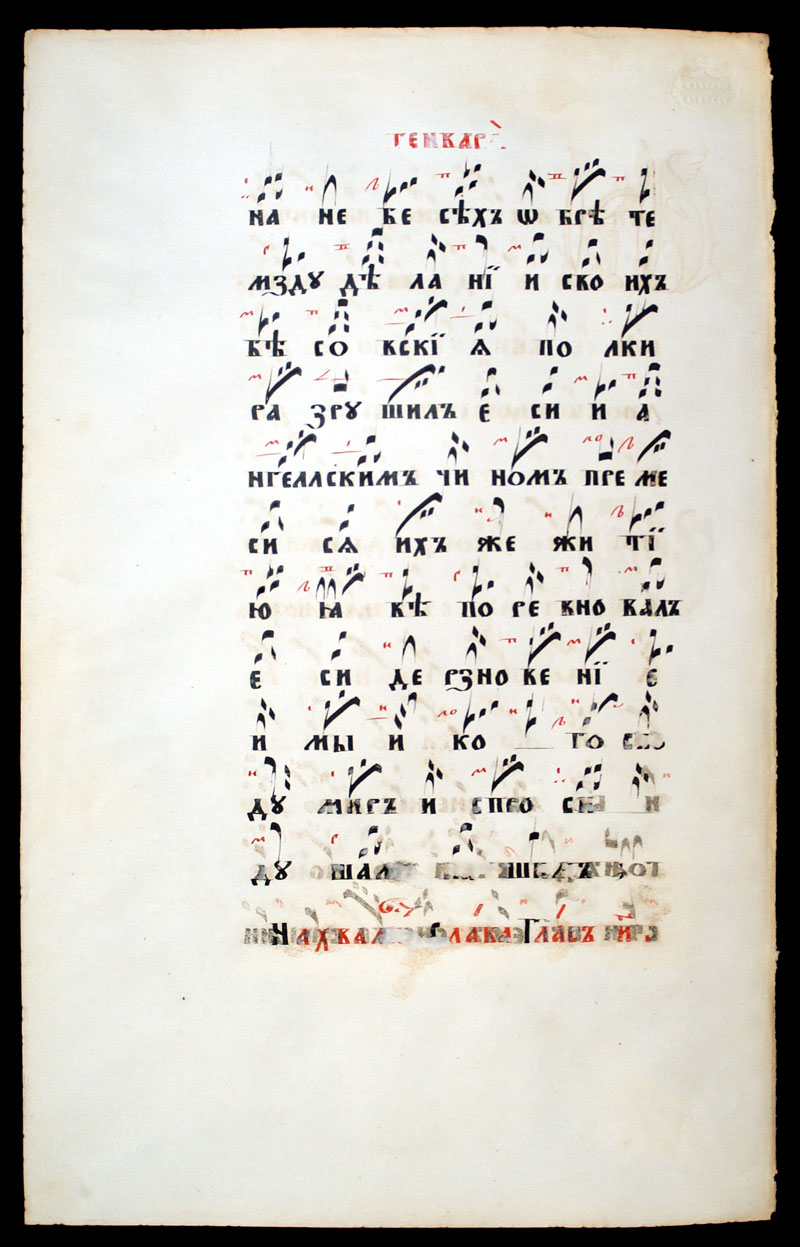 ГЕНВАРЬ
НА НЕ БЕ СѢХЪ Ѡ БРѢ ТЕ
МЗДУ ДѢ ЛА НЇ И СВО ИХЪ
БѢ СО ВСКЇ Я ПО ЛКИ
РА ЗРУ ШИЛЪ Е СИ И А
НГЕЛЛСКИМЪ ЧИ НОМЪ ПРЕ МЕ
СИ СѦ ИХЪ ЖЕ ЖИ ТЇ
Ю ꙖА ВѢ ПО РЕ ВНО ВАЛЪ
Е СИ ДЕ РЗНО ВЕ НЇ Е
И МЫ И КО ГО
ДУ МИРЪ И СПРО СИ И
ДУ ША
СЛАВА ГЛАСЪ И҃